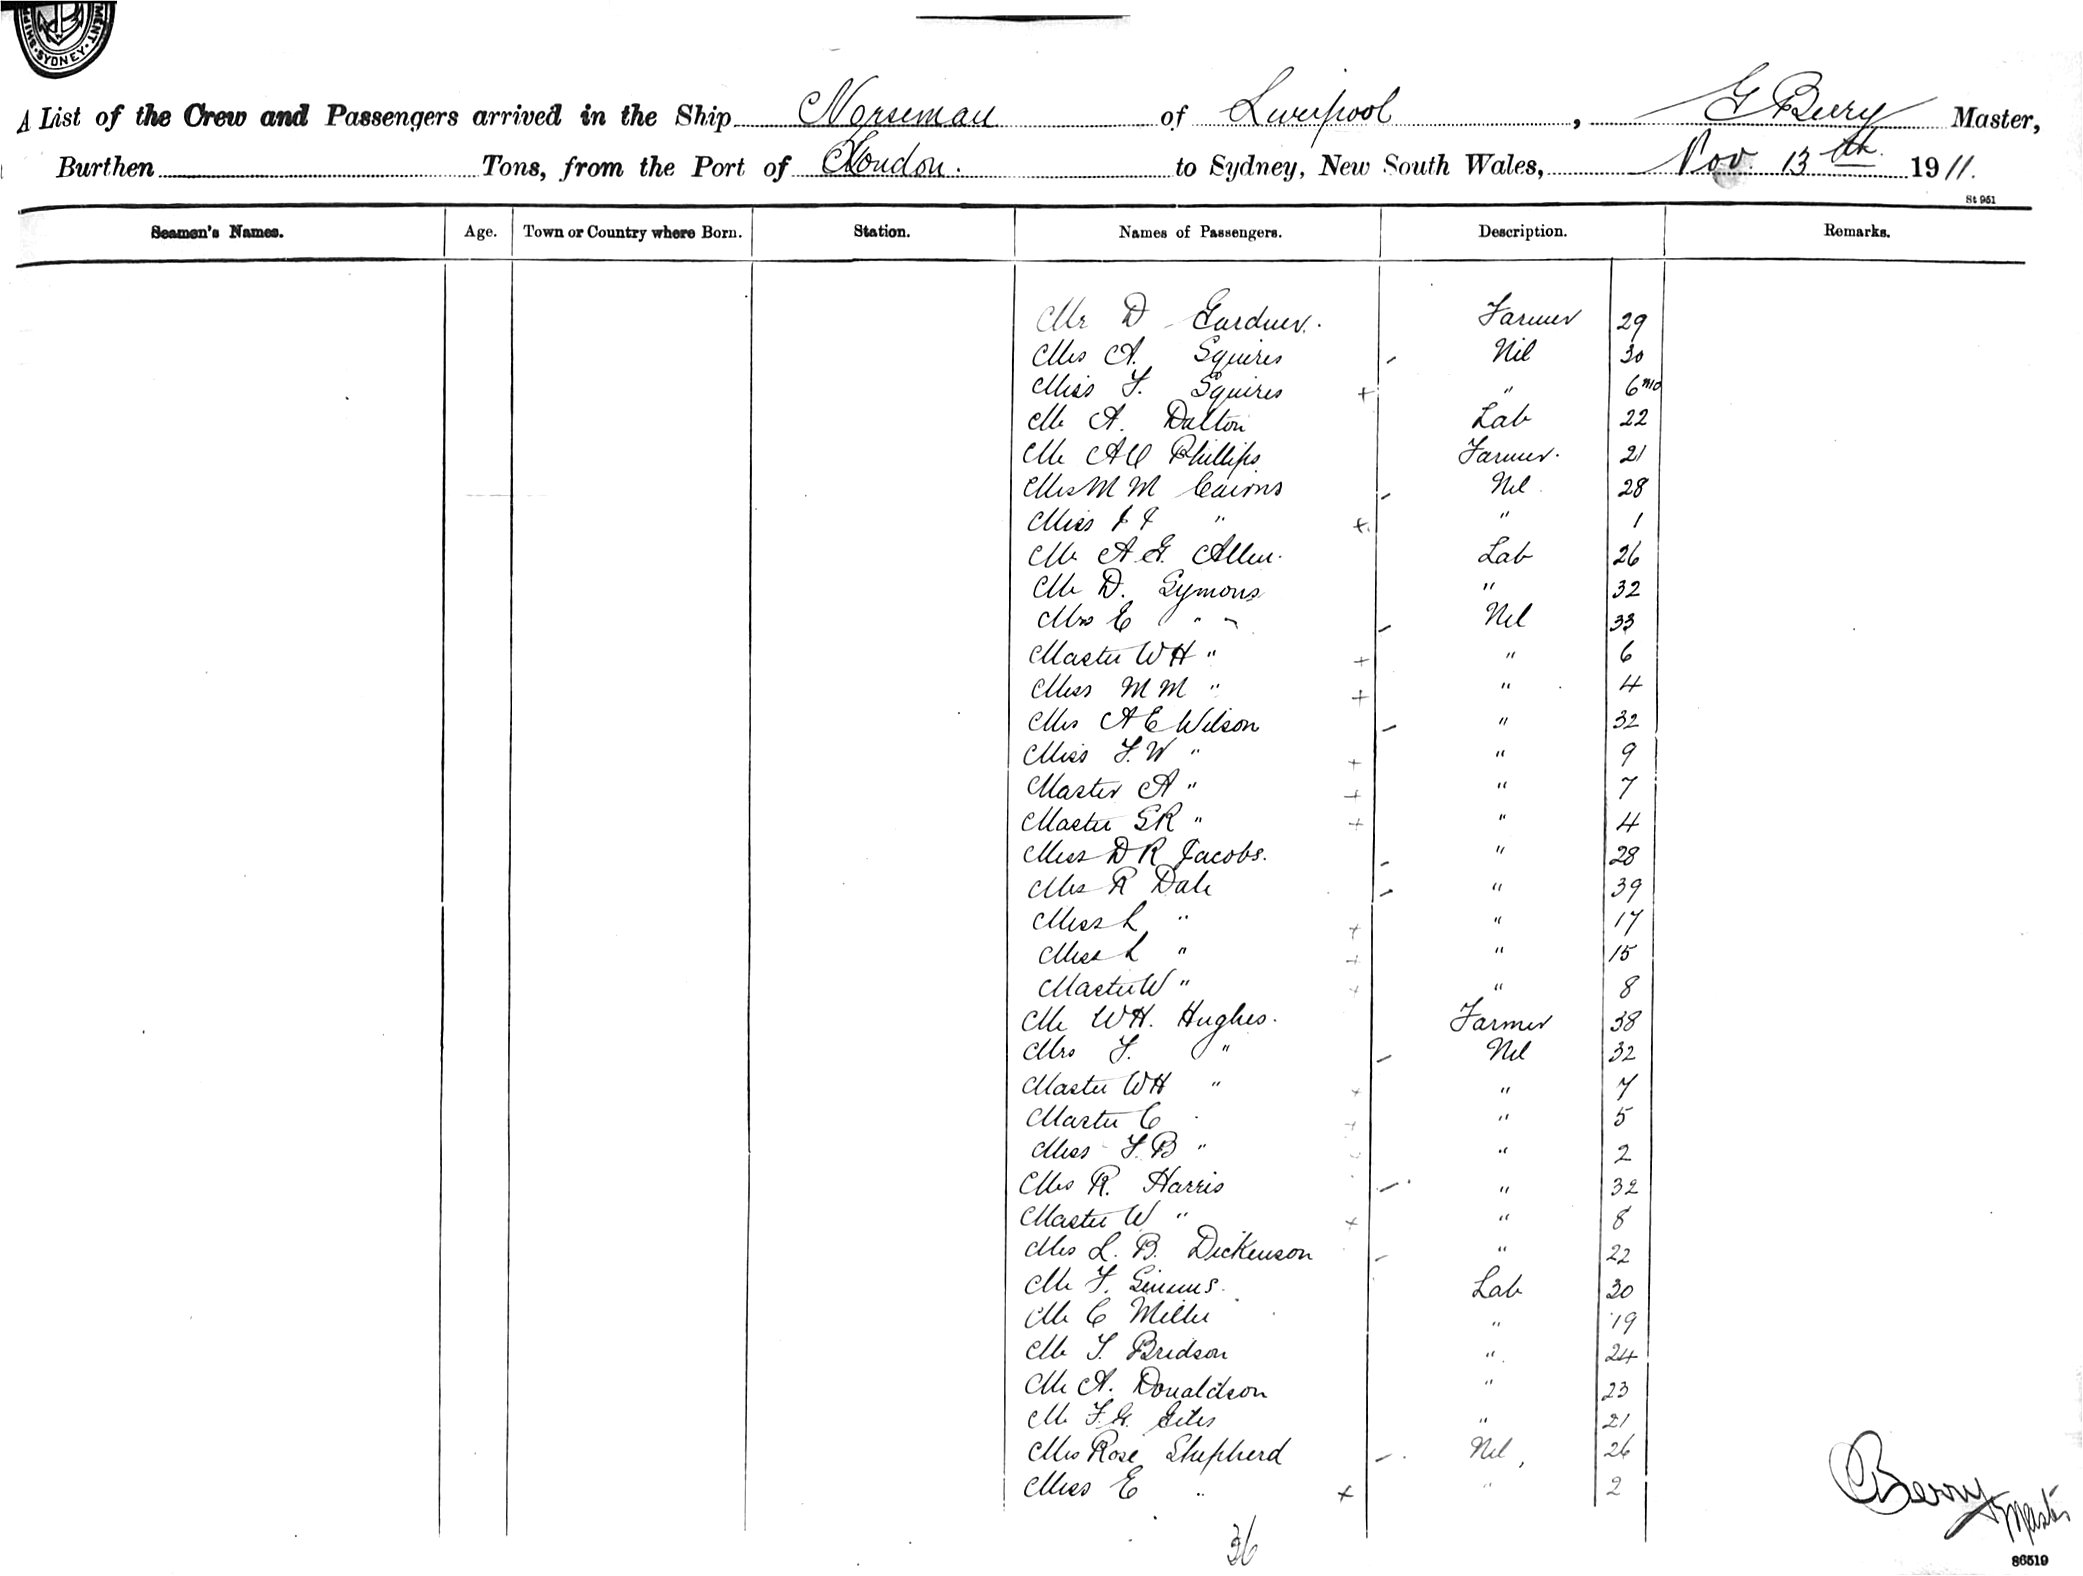 SHIP MENT. SYDNEY.
A List of the Crew and Passengers arrived in the Ship Norseman of Liverpool, G Berry Master,
Burthen Tons, from the Port of London. to Sydney, New South Wales, Nov. 13th 1911.
St 951
Seamen's Names. Age. Town or Country where Born. Station. Names of Passengers. Description. Remarks.
Mr D Gardner. Farmer 29
Mrs A. Squires - Nil 30
Miss F. Squires + " 6 mo
Mr A. Dalton Lab 22
Mr A C Phillips Farmer. 21
Mrs M M Cairns - Nil. 28
Miss " + " 1
Mr A. G. Allen. Lab 26
Mr D. Symons " 32
Mrs E " - Nil 33
Master W H " + " 6
Miss M M " + " 4
Mrs A E Wilson - " 32
Miss F. W " + " 9
Master A " + " 7
Master S R " + " 4
Miss D R Jacobs. - " 28
Mrs R Dale - " 39
Miss L " + " 17
Miss L " + " 15
Master W " + " 8
Mr W H. Hughes. Farmer 38
Mrs F. " - Nil 32
Master W H " + " 7
Master C " + " 5
Miss F. B " " 2
Mrs R. Harris - " 32
Master W " + " 8
Mrs L. B. Dickenson - " 22
Mr F. Simms. Lab 30
Mr C Miller " 19
Mr T. Bridson " 24
Mr A. Donaldson " 23
Mr F. G. " 21
Mrs Rose Shepherd - Nil 26
Miss E " + " 2
36
Berry
Master
86519